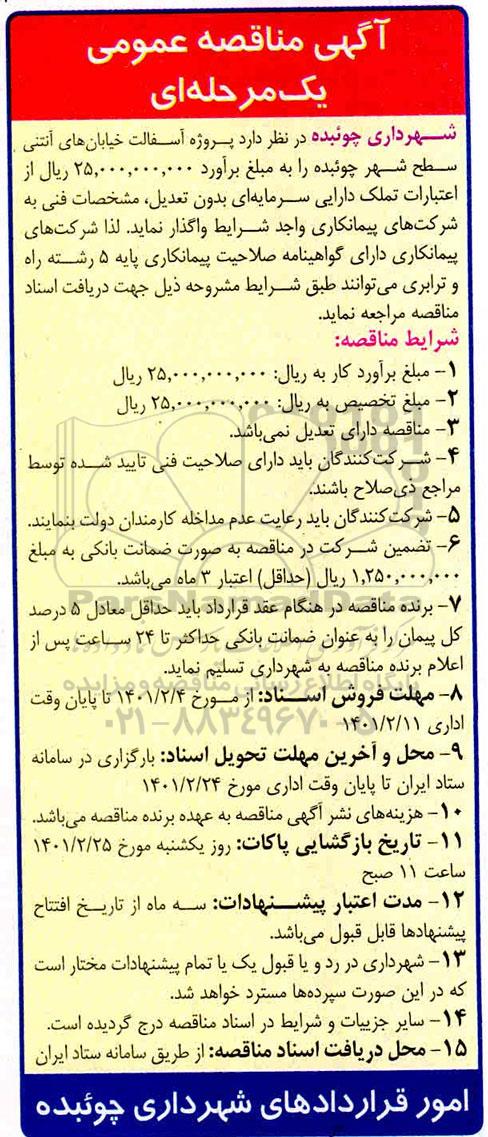 آگهی مناقصه عمومی
یک‌مرحله‌ای
شهرداری چوئبده در نظر دارد پروژه آسفالت خیابان‌های آنتنی
سطح شهر چوئبده را به مبلغ برآورد ۲۵,۰۰۰,۰۰۰,۰۰۰ ریال از
اعتبارات تملک دارایی سرمایه‌ای بدون تعدیل، مشخصات فنی به
شرکت‌های پیمانکاری واجد شرایط واگذار نماید. لذا شرکت‌های
پیمانکاری دارای گواهینامه صلاحیت پیمانکاری پایه ۵ رشته راه
و ترابری می‌توانند طبق شرایط مشروحه ذیل جهت دریافت اسناد
مناقصه مراجعه نماید.
شرایط مناقصه:
۱- مبلغ برآورد کار به ریال: ۲۵,۰۰۰,۰۰۰,۰۰۰ ریال
۲- مبلغ تخصیص به ریال: ۲۵,۰۰۰,۰۰۰,۰۰۰ ریال
۳- مناقصه دارای تعدیل نمی‌باشد.
۴- شرکت‌کنندگان باید دارای صلاحیت فنی تایید شده توسط
مراجع ذی‌صلاح باشند.
۵- شرکت‌کنندگان باید رعایت عدم مداخله کارمندان دولت بنمایند.
۶- تضمین شرکت در مناقصه به صورت ضمانت بانکی به مبلغ
۱,۲۵۰,۰۰۰,۰۰۰ ریال (حداقل) اعتبار ۳ ماه می‌باشد.
ParsNamadData
۷- برنده مناقصه در هنگام عقد قرارداد باید حداقل معادل ۵ درصد
کل پیمان را به عنوان ضمانت بانکی حداکثر تا ۲۴ ساعت پس از
اعلام برنده مناقصه به شهرداری تسلیم نماید.
پایگاه اطلاع رسانی مناقصه و مزایده
۸- مهلت فروش اسناد: از مورخ ۱۴۰۱/۲/۴ تا پایان وقت
اداری ۱۴۰۱/۲/۱۱
۰۲۱-۸۸۳۴۹۶۷۰-۵
۹- محل و آخرین مهلت تحویل اسناد: بارگزاری در سامانه
ستاد ایران تا پایان وقت اداری مورخ ۱۴۰۱/۲/۲۴
۱۰- هزینه‌های نشر آگهی مناقصه به عهده برنده مناقصه می‌باشد.
۱۱- تاریخ بازگشایی پاکات: روز یکشنبه مورخ ۱۴۰۱/۲/۲۵
ساعت ۱۱ صبح
۱۲- مدت اعتبار پیشنهادات: سه ماه از تاریخ افتتاح
پیشنهادها قابل قبول می‌باشد.
۱۳- شهرداری در رد و یا قبول یک یا تمام پیشنهادات مختار است
که در این صورت سپرده‌ها مسترد خواهد شد.
۱۴- سایر جزییات و شرایط در اسناد مناقصه درج گردیده است.
۱۵- محل دریافت اسناد مناقصه: از طریق سامانه ستاد ایران
امور قراردادهای شهرداری چوئبده